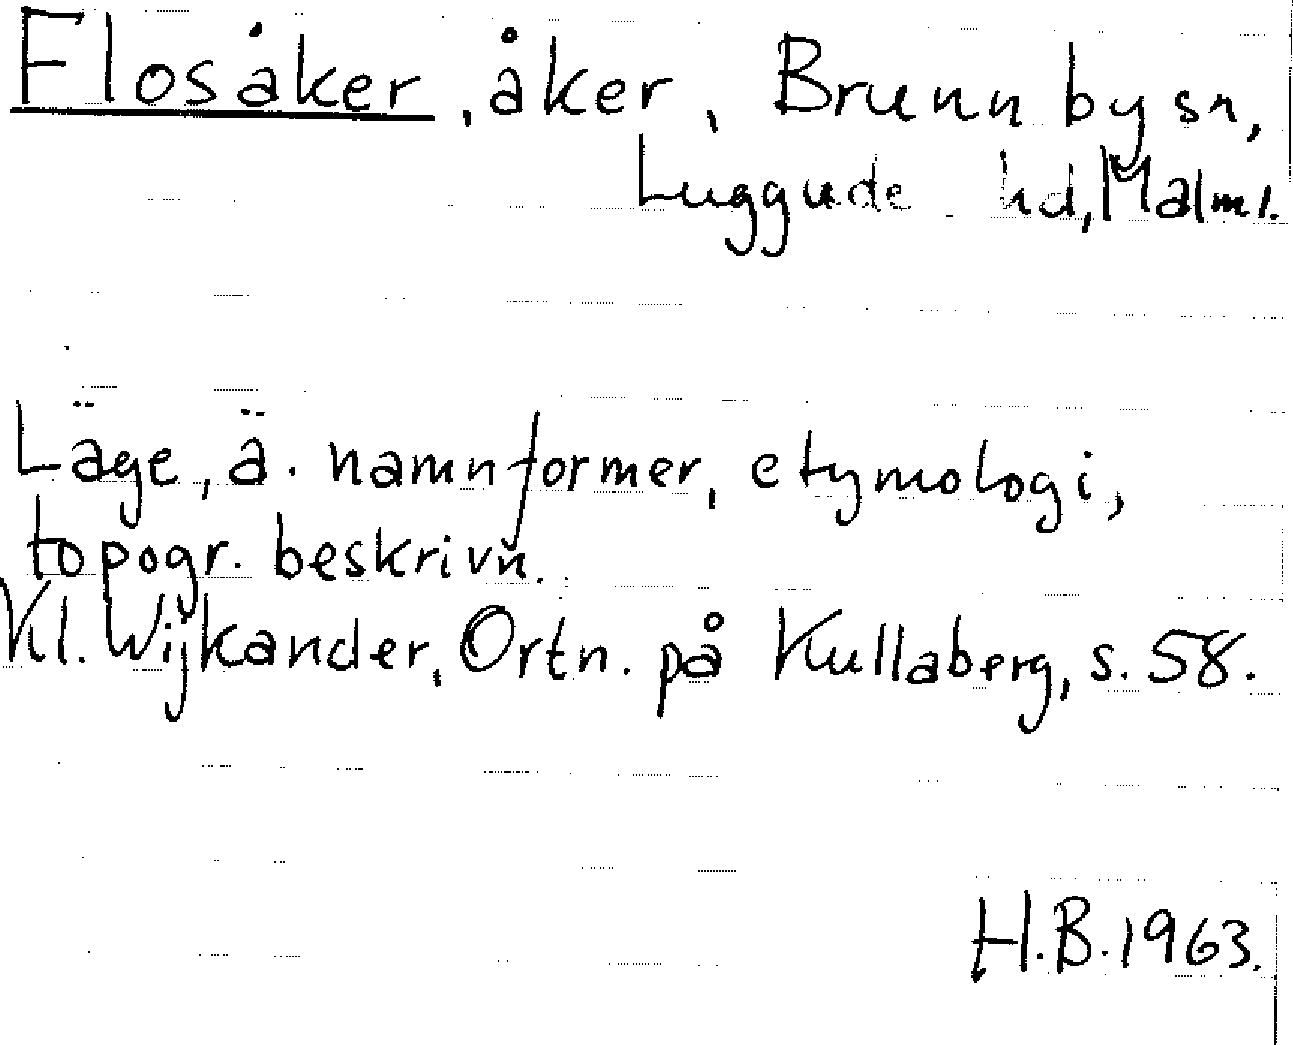 Flosåker, åker, Brunnby sn,
Luggude hd, Malm l.
Läge, ä. namnformer, etymologi,
topogr. beskrivn.
Kl. Wijkander, Ortn. på Kullaberg, s. 58.
H.B. 1963.